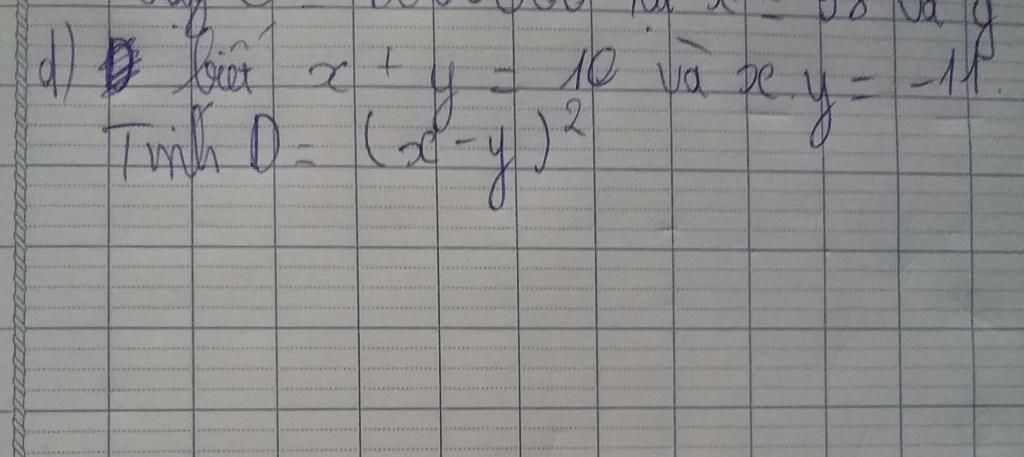 d) biết x + y = 10 và x.y = -11.
Tính D = (x - y)²